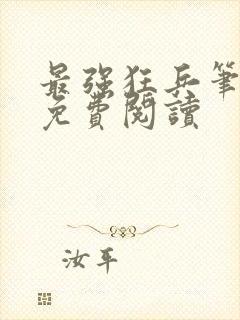 最強狂兵筆
免費閱讀
汝平